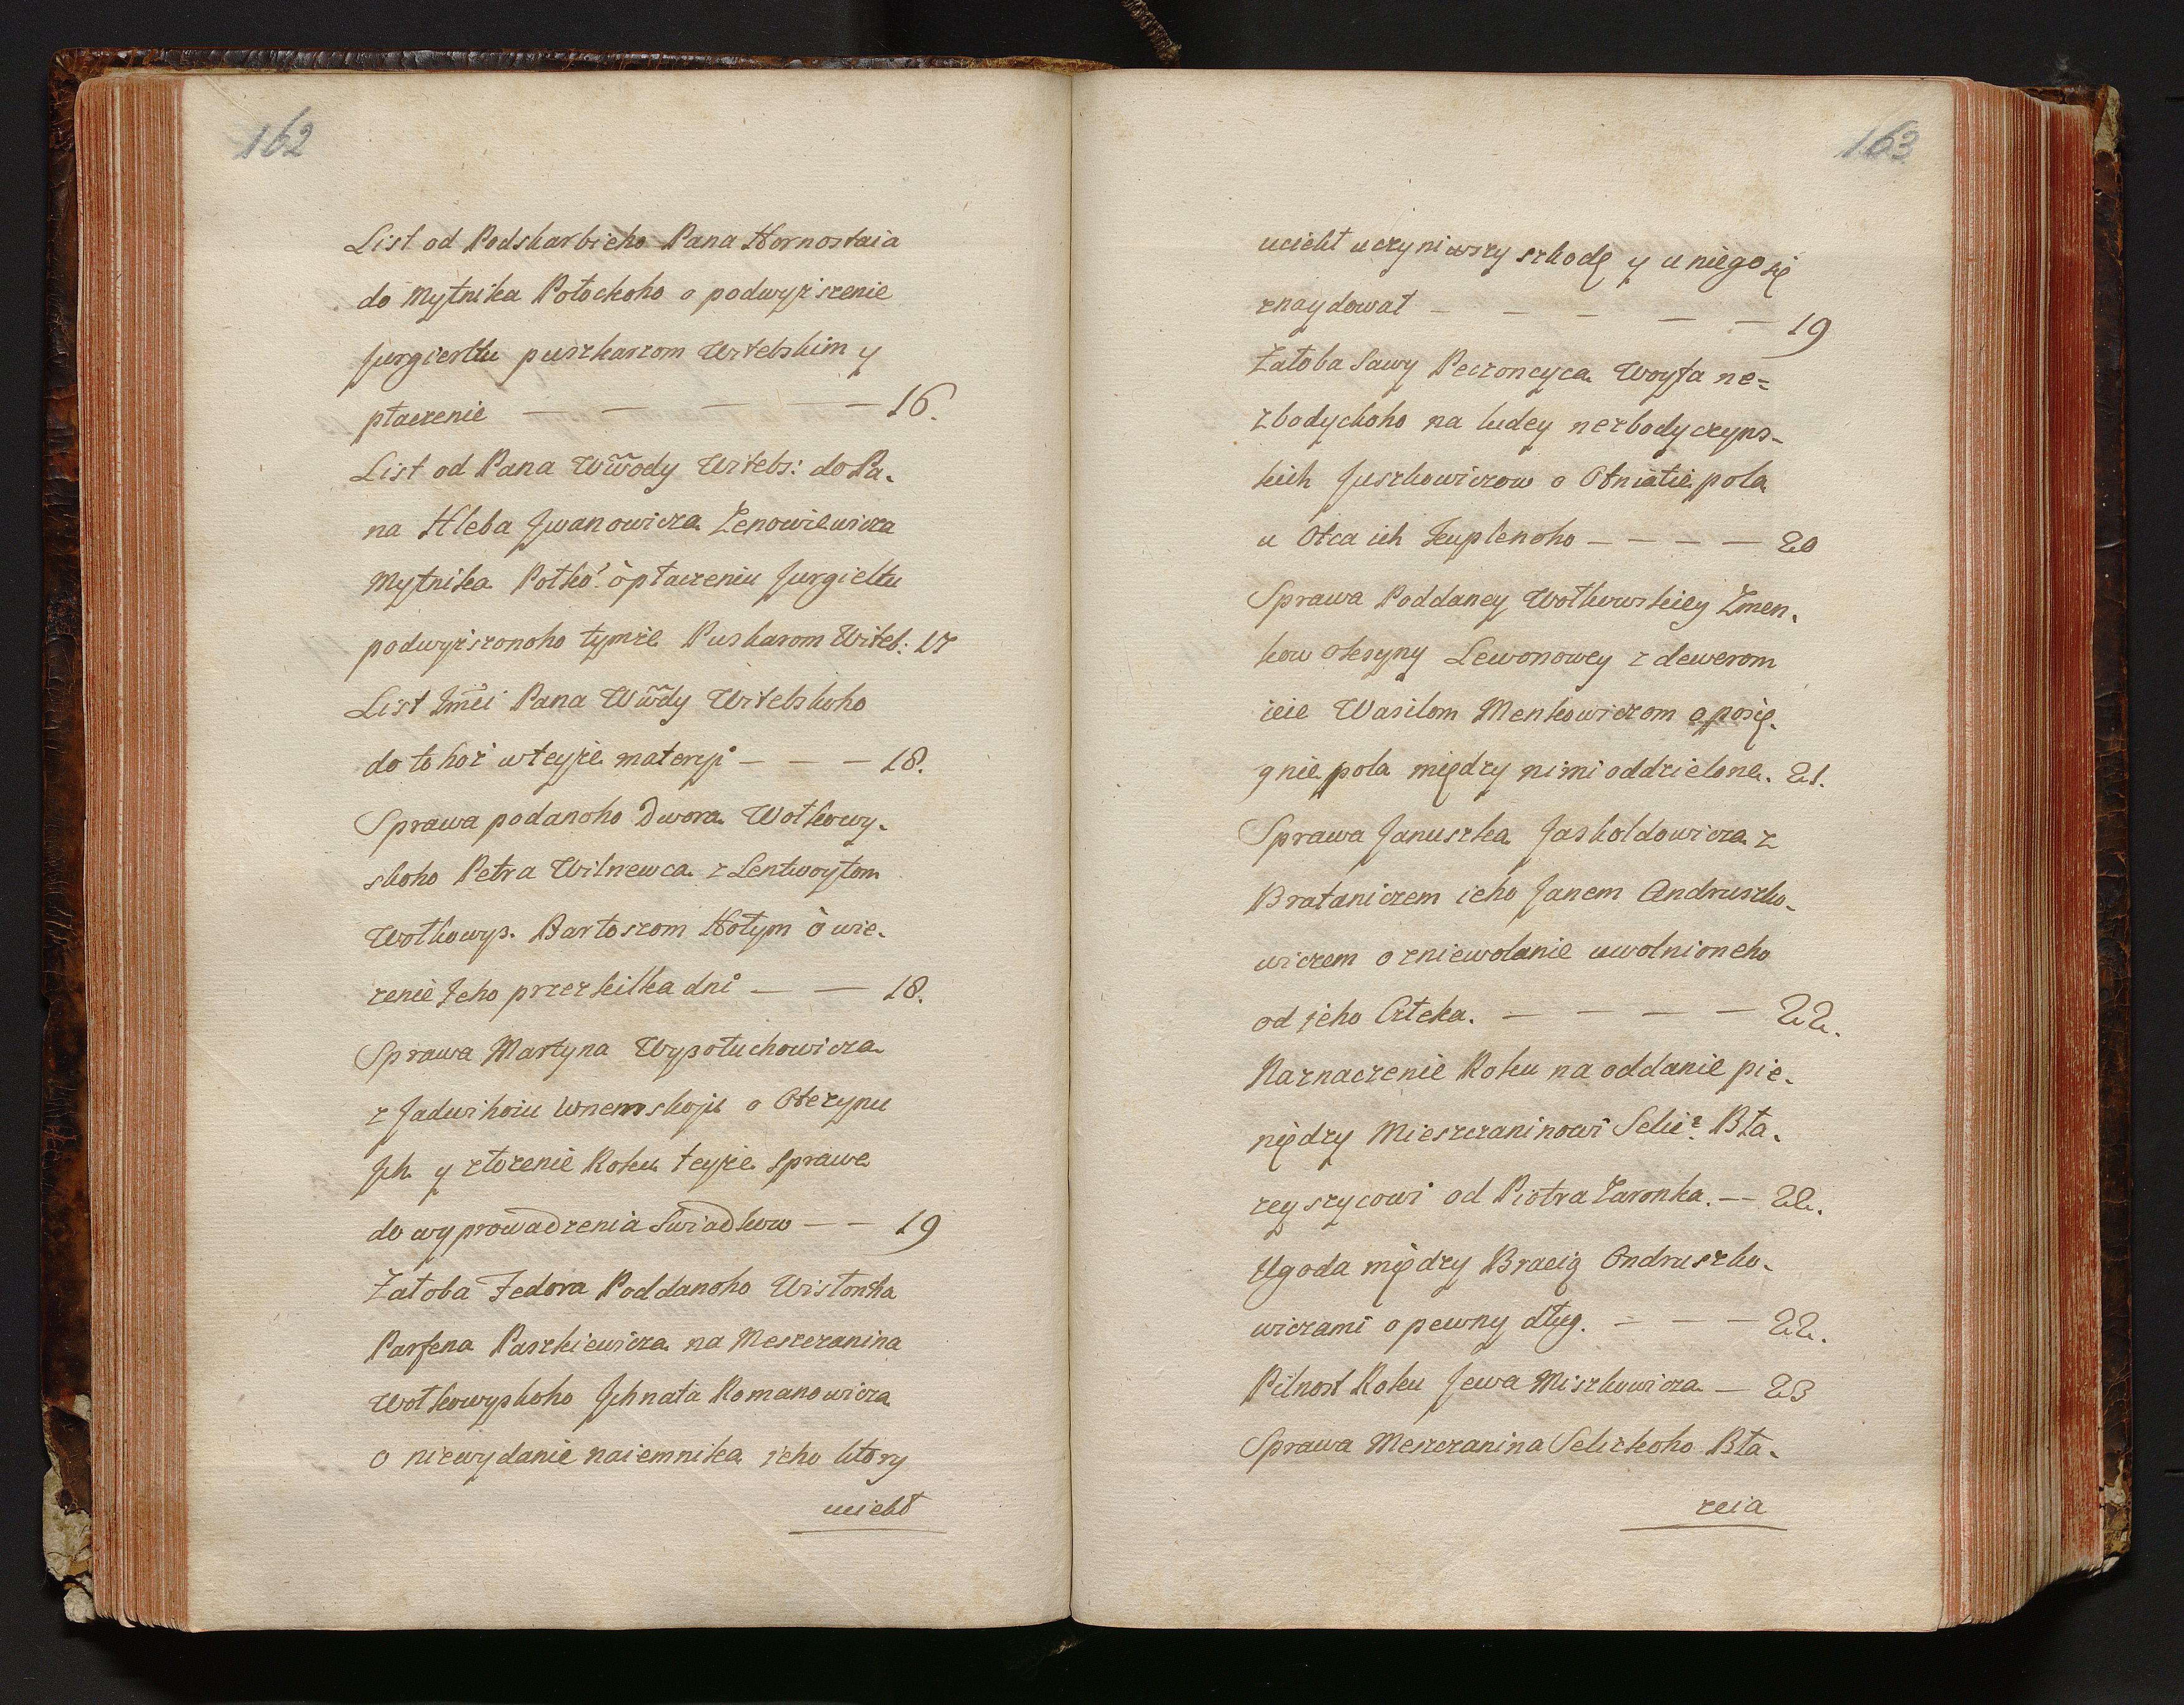 162
List od Podskarbieho Pana Hornostaia
do Mytnika Połockoho o podwyższenie
Jurgieltu puszkarzom Witebskim y
płaczenie — — — — 16.
List od Pana Wwody Witebs: do Pa-
na Hleba Jwanowicza Zenowiewicza
Mytnika Połkó: o płaczeniu Jurgieltu
podwyższonoho tymże Puskarom Witeb: 17
List Jmći Pana Wwdy Witebskoho
do tohoż wteyże materyi — — — 18.
Sprawa podanoho Dwora Wołkowy-
skoho Petra Wilnewca z Lentwoytom
Wołkowys. Bartoszom Hołym o wie-
zenie Jeho przez kilka dni — — 18.
Sprawa Martyna Wysołuchowicza
z Jadwihoiu Wnemskoju o Otczynu
Jch y złożenie Roku teyże sprawe
do wyprowadzenia Swiadkow — — 19
Załoba Fedora Poddanoho Wistonka
Parfena Paszkiewicza na Meszczanina
Wołkowyskoho Jhnata Romanowicza
o niewydanie naiemnika ieho który
uciekł
163
uciekł uczyniwszy szkodę y u niego się
znaydował — — — — — 19
Załoba Sawy Peczoncyca Woyta ne=
zbodyckoho na ludey nezbodyczyns-
kich Juszkowiczow o Otniatie pola
u Otca ich Kuplenoho — — — — 20
Sprawa Poddaney Wołkowskiey Zmen-
kow Olesyny Lewonowey z dewerom
ieie Wasilom Menkowiczom o posię-
gnie pola między nimi oddzielone. 21.
Sprawa Januszka Jaskoldowicza z
Brataniczem ieho Janem Andruszko-
wiczem o zniewolanie uwolnioneho
od jeho Człeka. — — — — 22.
Naznaczenie Roku na oddanie pie-
niędzy Mieszczaninowi Selic: Bła-
zeyszycowi od Piotra Zaronka. — 22.
Ugoda między Bracią Andruszko-
wiczami o pewny dług. — — — 22.
Pilnost Roku Jewa Miszkowicza — 23
Sprawa Meszczanina Seleckoho Bła-
zeia